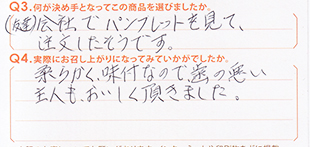 Q3.何が決め手となってこの商品を選びましたか
会社でパンフレットを見て、
注文したそうです。
Q4.実際にお召し上がりになってみていかがでしたか
柔らかく、味付なので、歯の悪い
主人も、おいしく頂きました。